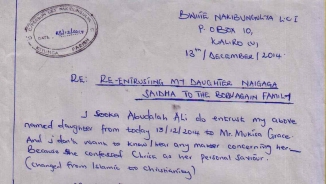 BWITE NAKIBUNGULYA L.C I
P.O BOX 10,
KALIRO (U)
13th/December/2014
RE: RE-ENTRUSTING MY DAUGHTER NAIGAGA
SAIDHA TO THE BORNAGAIN FAMILY
I Abudalah Ali do entrust my above
named daughter from today 13/12/2014 to Mr. Mukisa Grace.
And i don't want to know/hear any matter concerning her
Because she confessed Christ as her personal saviour.
(changed from Islamic to Christianity)